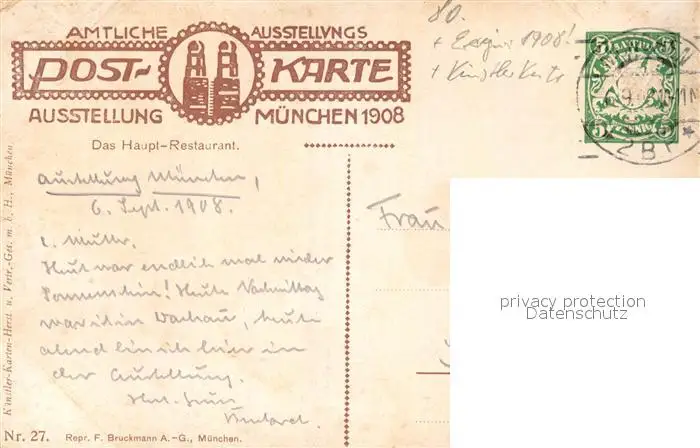 AMTLICHE AUSSTELLVNGS
POST-KARTE
AUSSTELLUNG MÜNCHEN 1908
80.
+ Ereignis 1908!
+ Künstlerkarte
5 5
5 5
2 B
Das Haupt-Restaurant.
Ausstellung München,
6. Sept. 1908.
L. Mutter.
Heut war endlich mal wieder
Sonnenschein! Heute Vormittag
war ich in Dachau, heute
abend bin ich hier in
der Ausstellung.
Herzl. Gruss
Frau
privacy protection
Datenschutz
Künstler-Karten-Herst. u. Vertr.-Ges. m. b. H., München
Nr. 27. Repr. F. Bruckmann A.-G., München.